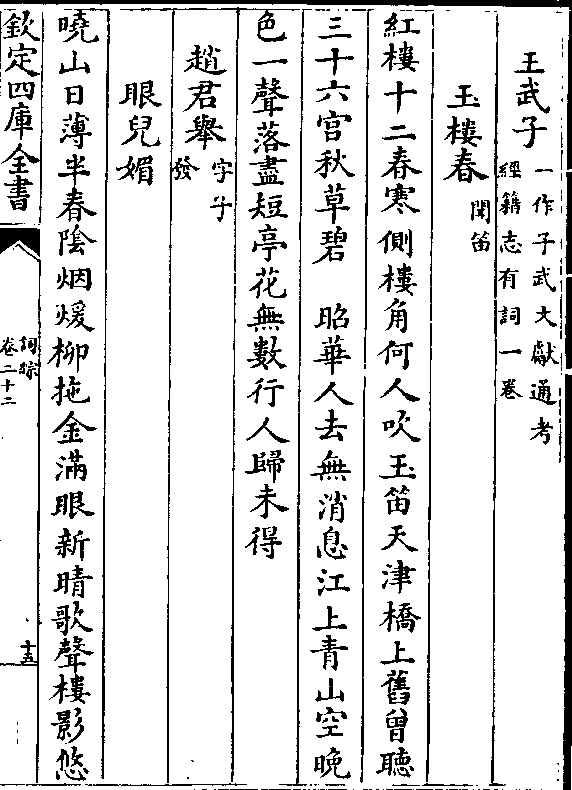 王武子一作子武文獻通考
經籍志有詞一卷
玉樓春聞笛
紅樓十二春寒側樓角何人吹玉笛天津橋上舊曾聽
三十六宮秋草碧　昭華人去無消息江上青山空晚
色一聲落盡短亭花無數行人歸未得
趙君舉字子
發
眼兒媚
曉山日薄半春陰烟煖柳拖金滿眼新晴歌聲樓影悠
欽定四庫全書
詞綜
卷二十二
十五